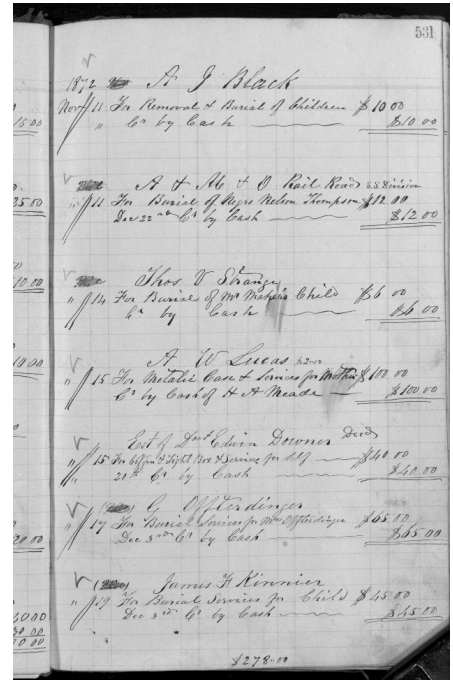 531
1872 A J Black
Nov 11 For Removal & Burial of Children $10 00
" Cr by Cash $10 00
A & M & O Rail Road S.S Division
" 11 For Burial of Negro Nelson Thompson $12 00
Dec 22nd Cr by Cash $12 00
Thos. V Strange
" 14 For Burial of Mr Maher's Child $6 00
Cr by Cash $6 00
A W Lucas
" 15 For Metalic Case & Services for Mother $100 00
Cr by Cash of H A Meade $100 00
Est of Edwin Downer Decd
" 15 For Coffin & Tight Box & Services for Self $40 00
" 20th Cr by Cash $40 00
G Offterdinger
" 17 For Burial Services for Mrs Offterdinger $65 00
Dec 3rd Cr by Cash $65 00
James H Kinnier
" 19 For Burial Services for Child $45 00
Dec 3rd Cr by Cash $45 00
$278.00
15 00
25 00
10 00
10 00
20 00